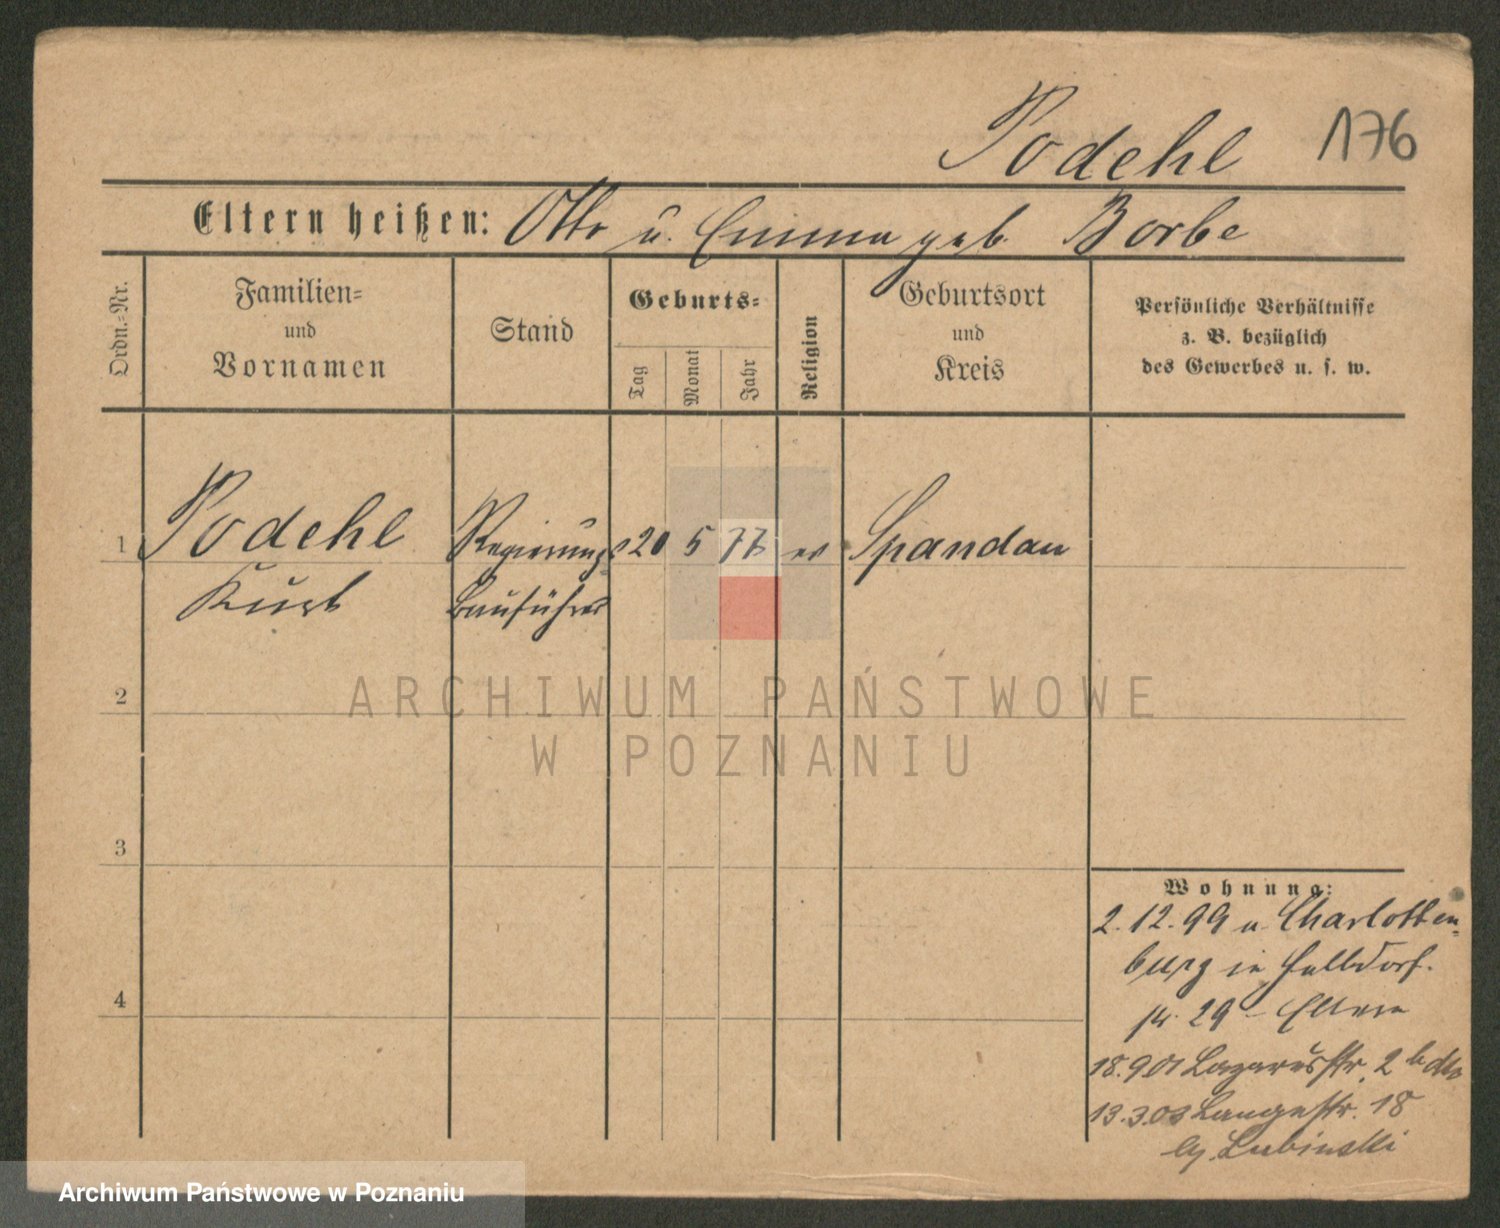 Podehl 176
Eltern heißen: Otto u. Emma geb. Borbe
Ordn.-Nr.
Familien-
und
Vornamen
Stand
Geburts-
Tag
Monat
Jahr
Religion
Geburtsort
und
Kreis
Persönliche Verhältnisse
z. B. bezüglich
des Gewerbes u. s. w.
1 Podehl Regierungs 20 5 77 ev Spandau
Kurt Bauführer
2
ARCHIWUM PAŃSTWOWE
W POZNANIU
3
4
Wohnung:
2.12.99 v. Charlotten=
burg in
29 - Eltern
18.9.01 Lazarusstr. 2 b
13.3.03 Langestr. 18
Lubinski
Archiwum Państwowe w Poznaniu